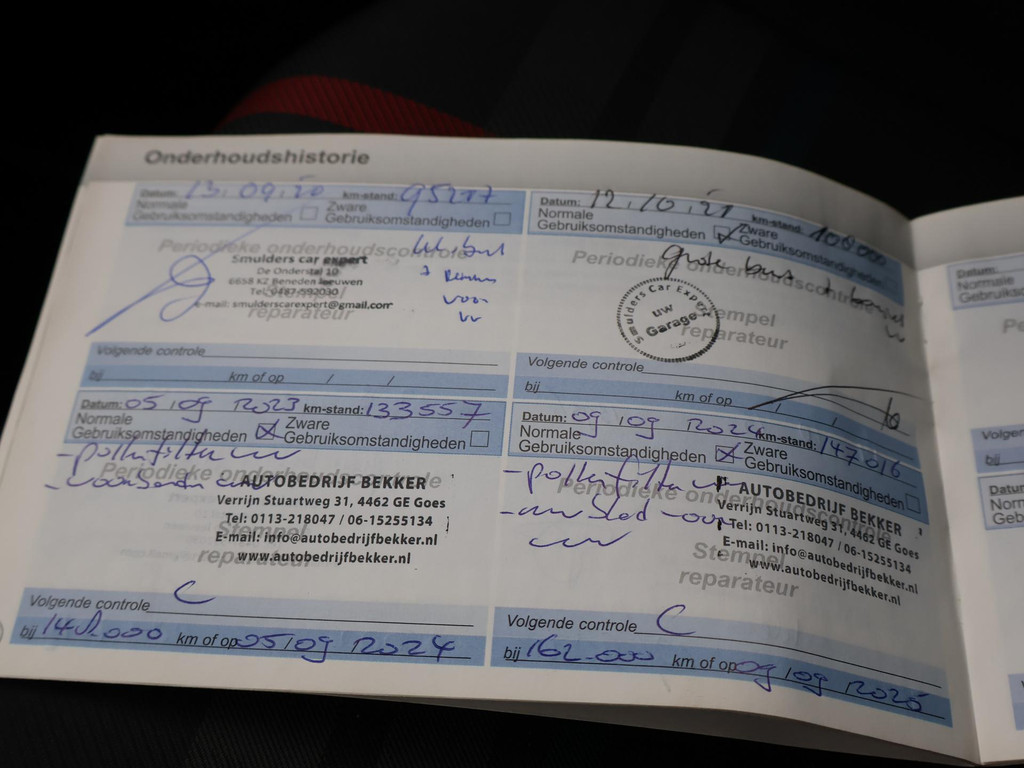 Onderhoudshistorie
Datum: 13.09.20 km-stand: 95277
Normale Gebruiksomstandigheden Zware Gebruiksomstandigheden
Periodieke onderhoudscontrole
Smulders car expert
De Onderstal 10
6658 KZ Beneden leeuwen
Tel. 0487-592030
e-mail: smulderscarexpert@gmail.com
Stempel
reparateur
voor
Volgende controle
bij km of op / /
Datum: 12.10.21 km-stand: 106000
Normale Gebruiksomstandigheden Zware Gebruiksomstandigheden
Grote beurt
Periodieke onderhoudscontrole
Smulders Car Expert
uw
Garage
Stempel
reparateur
Volgende controle
bij km of op / /
Datum: 05/09/2023 km-stand: 133557
Normale Gebruiksomstandigheden Zware Gebruiksomstandigheden
- pollenfilter
Periodieke onderhoudscontrole
AUTOBEDRIJF BEKKER
Verrijn Stuartweg 31, 4462 GE Goes
Tel: 0113-218047 / 06-15255134
E-mail: info@autobedrijfbekker.nl
www.autobedrijfbekker.nl
Stempel
reparateur
Volgende controle C
bij 148.000 km of op 05/09/2024
Datum: 09/09/2024 km-stand: 147016
Normale Gebruiksomstandigheden Zware Gebruiksomstandigheden
- pollenfilter
Periodieke onderhoudscontrole
AUTOBEDRIJF BEKKER
Verrijn Stuartweg 31, 4462 GE Goes
Tel: 0113-218047 / 06-15255134
E-mail: info@autobedrijfbekker.nl
www.autobedrijfbekker.nl
Stempel
reparateur
Volgende controle C
bij 162.000 km of op 09/09/2025
Datum:
Normale
Gebruiksom
Pe
Volgen
bij
Datum
Norm
Gebr